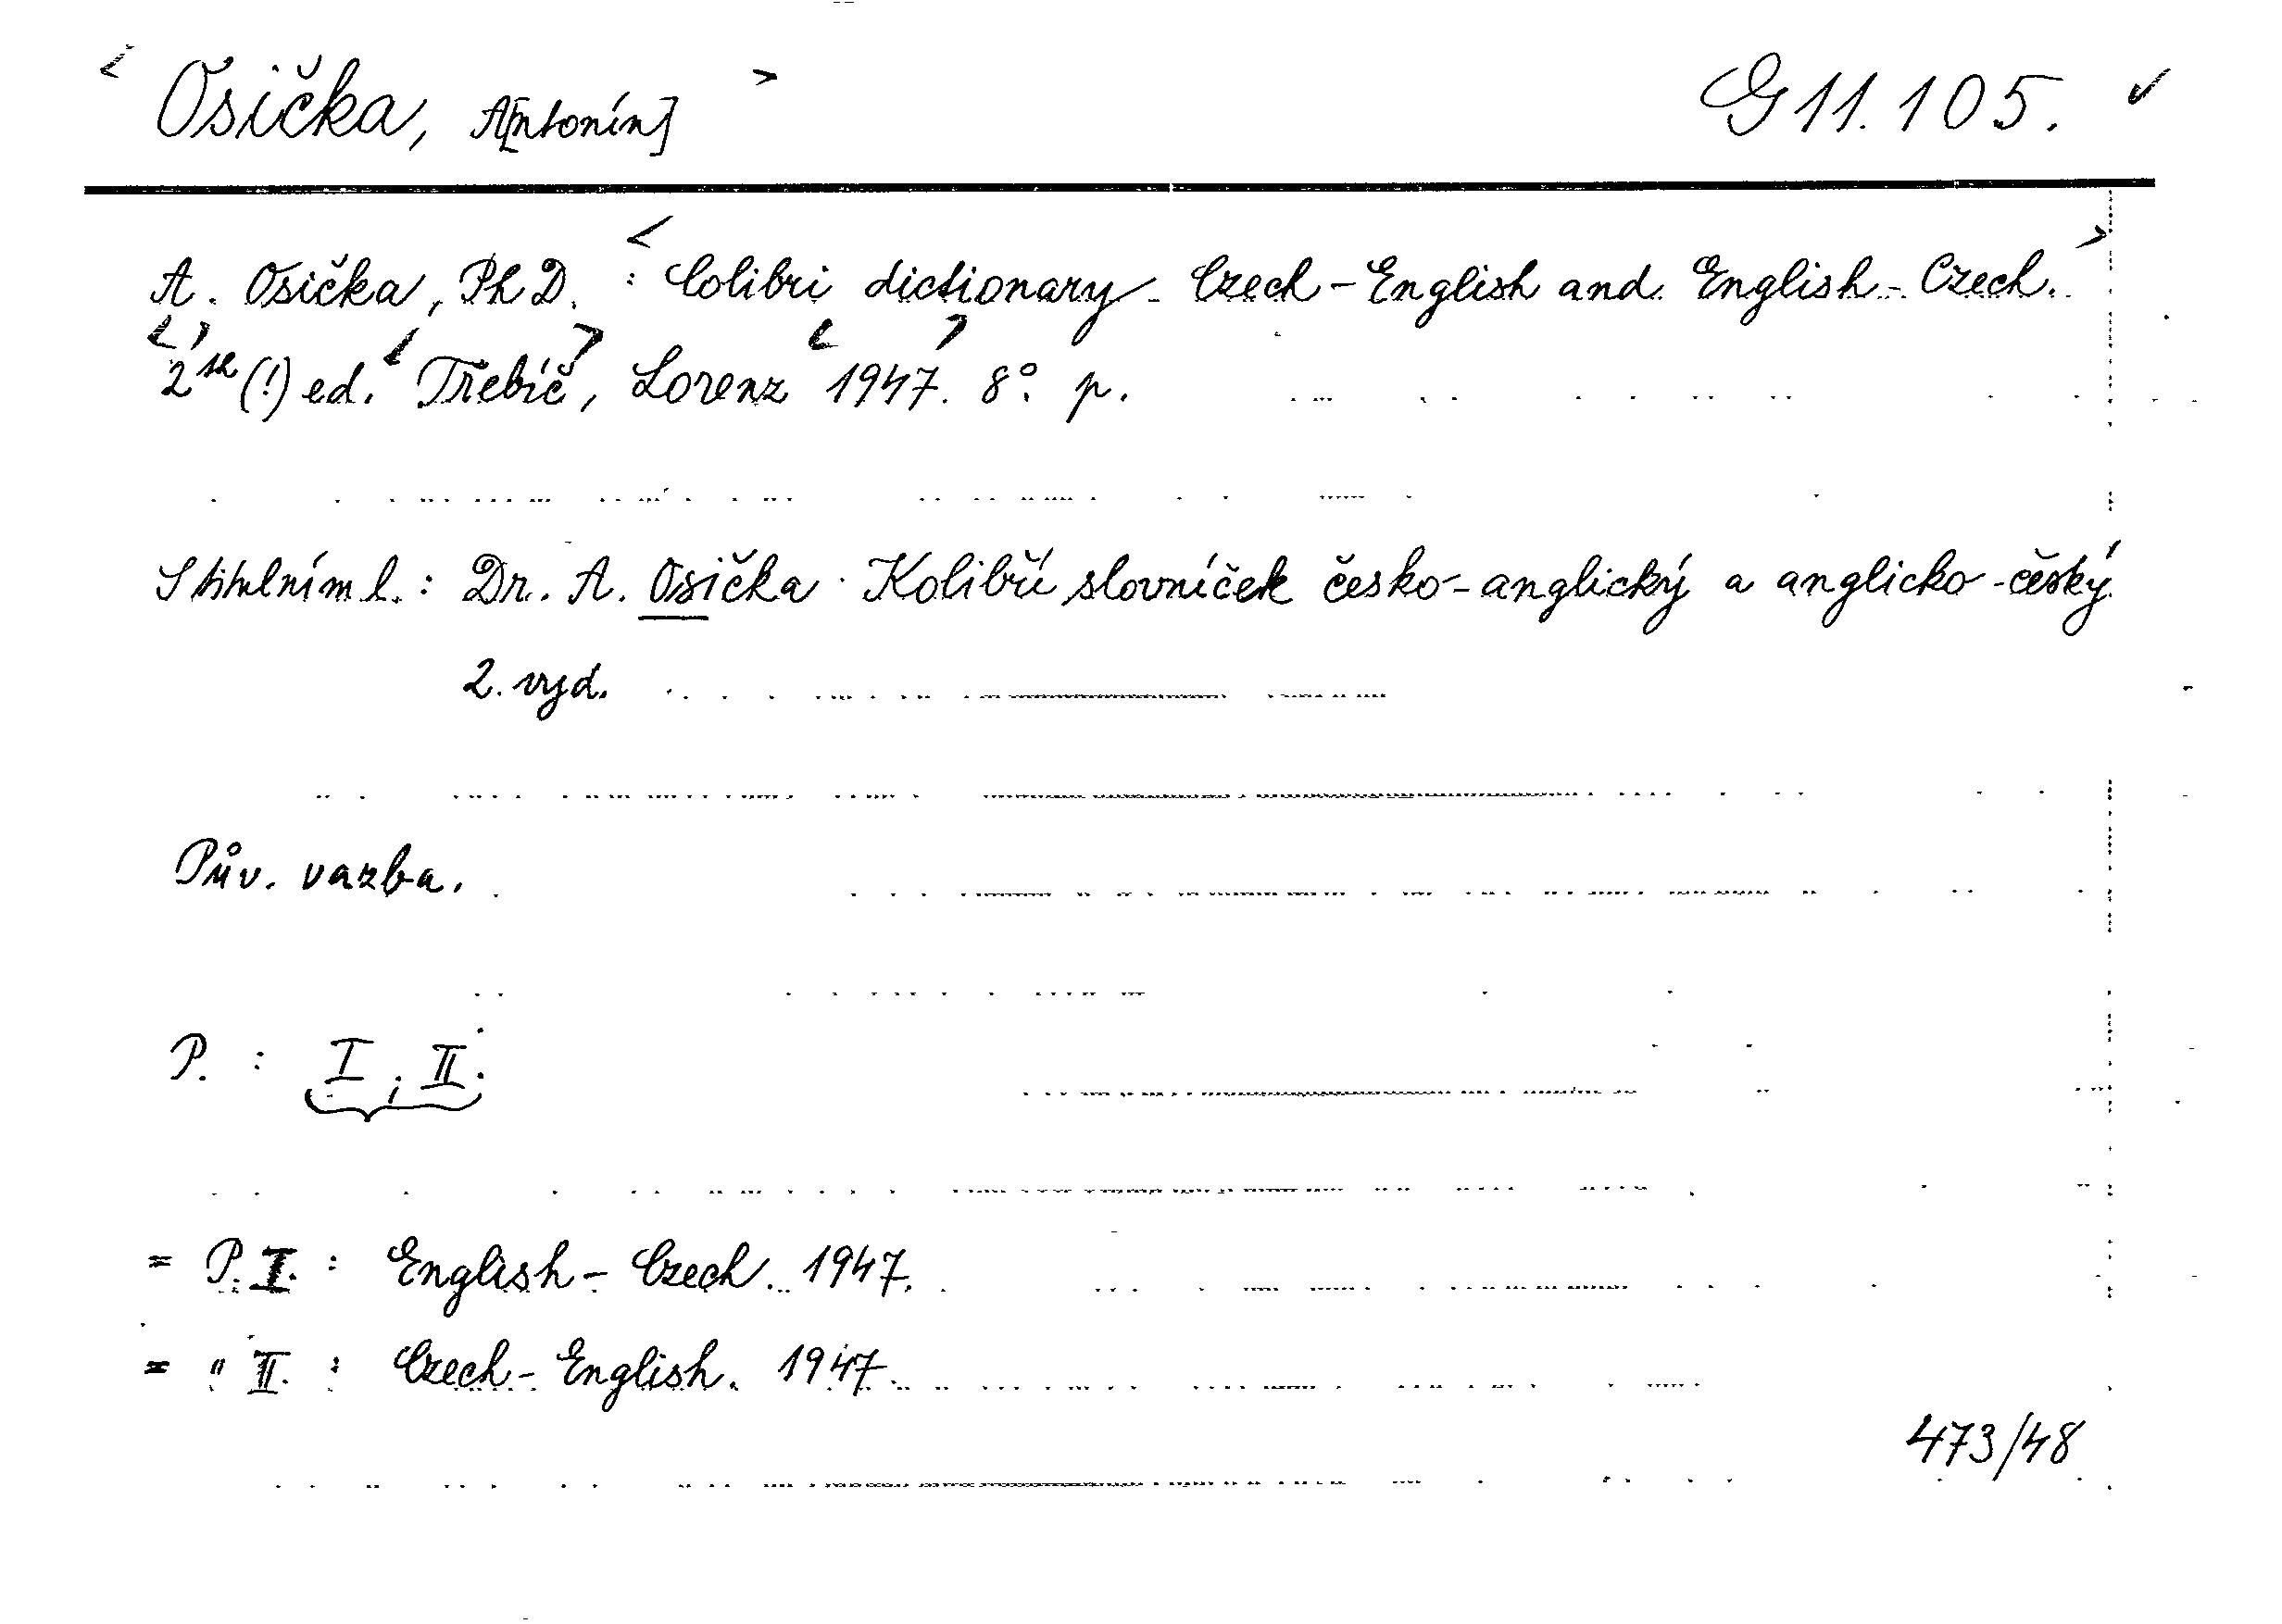 < Osička, A[ntonín] > G 11.105. ✓
A. Osička, Ph D. : < Colibri dictionary Czech-English and English-Czech. >
<2> (!) ed. <Třebíč>, Lorenz <1947>. 8° p.
S titulním l.: Dr. A. Osička Kolibří slovníček česko-anglický a anglicko-český.
2. vyd.
Pův. vazba.
P. : I, II.
= P. I. : English-Czech. 1947.
= " II. : Czech-English. 1947.
473/48